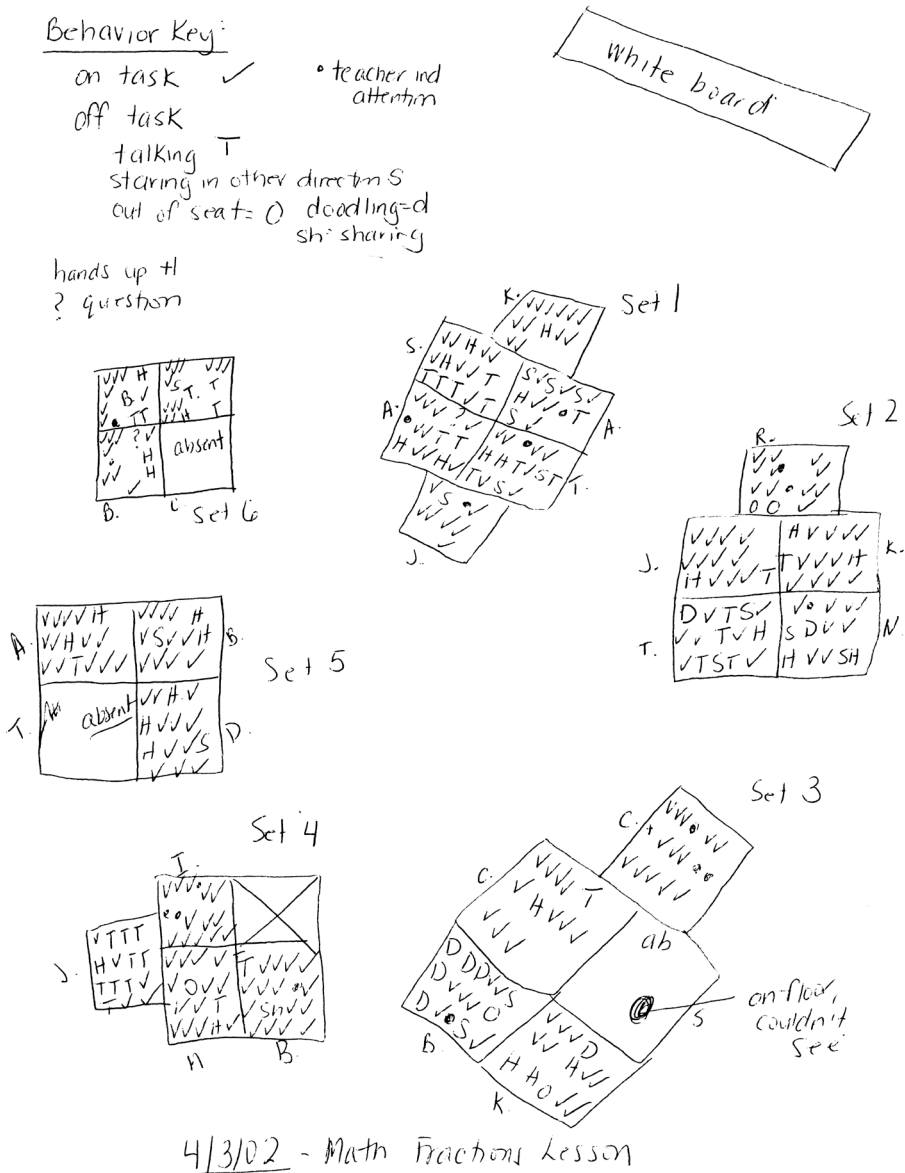 Behavior Key:
on task ✓
• teacher ind
attention
off task
talking T
staring in other directn S
out of seat= O doodling=d
sh: sharing
hands up H
? question
White board
Set 1
K.
✓✓✓✓✓
✓✓H✓✓
✓✓
S.
✓✓H✓✓
✓H✓✓T
TTT✓T
S✓S✓S✓
H✓✓•T
S✓
A.
A.
T.
J.
Set 2
R.
✓✓ ✓✓
✓✓•✓
✓✓•✓✓
OO ✓
J.
✓✓✓✓
✓✓✓✓
H✓✓✓T
H✓✓✓✓
T✓✓✓H
✓✓✓✓
K.
T.
D✓TS✓
✓✓T✓H
✓TST✓
✓•✓✓✓
SD✓✓✓
H✓✓SH
N.
Set 6
absent
B.
Set 5
A.
✓✓✓✓H
✓✓H✓✓
✓✓T✓✓✓
✓✓✓✓H
✓S✓✓H
✓✓✓✓
B.
T.
absent
✓✓H✓
H✓✓✓
H✓✓S
✓✓✓
D.
Set 4
I.
J.
✓TTT
H✓TT
TTT✓
T✓✓
B.
Set 3
C.
C.
✓✓✓✓T
✓H✓✓
✓✓✓
ab
S
on floor,
couldn't
see
B.
K.
4/3/02 - Math Fractions Lesson